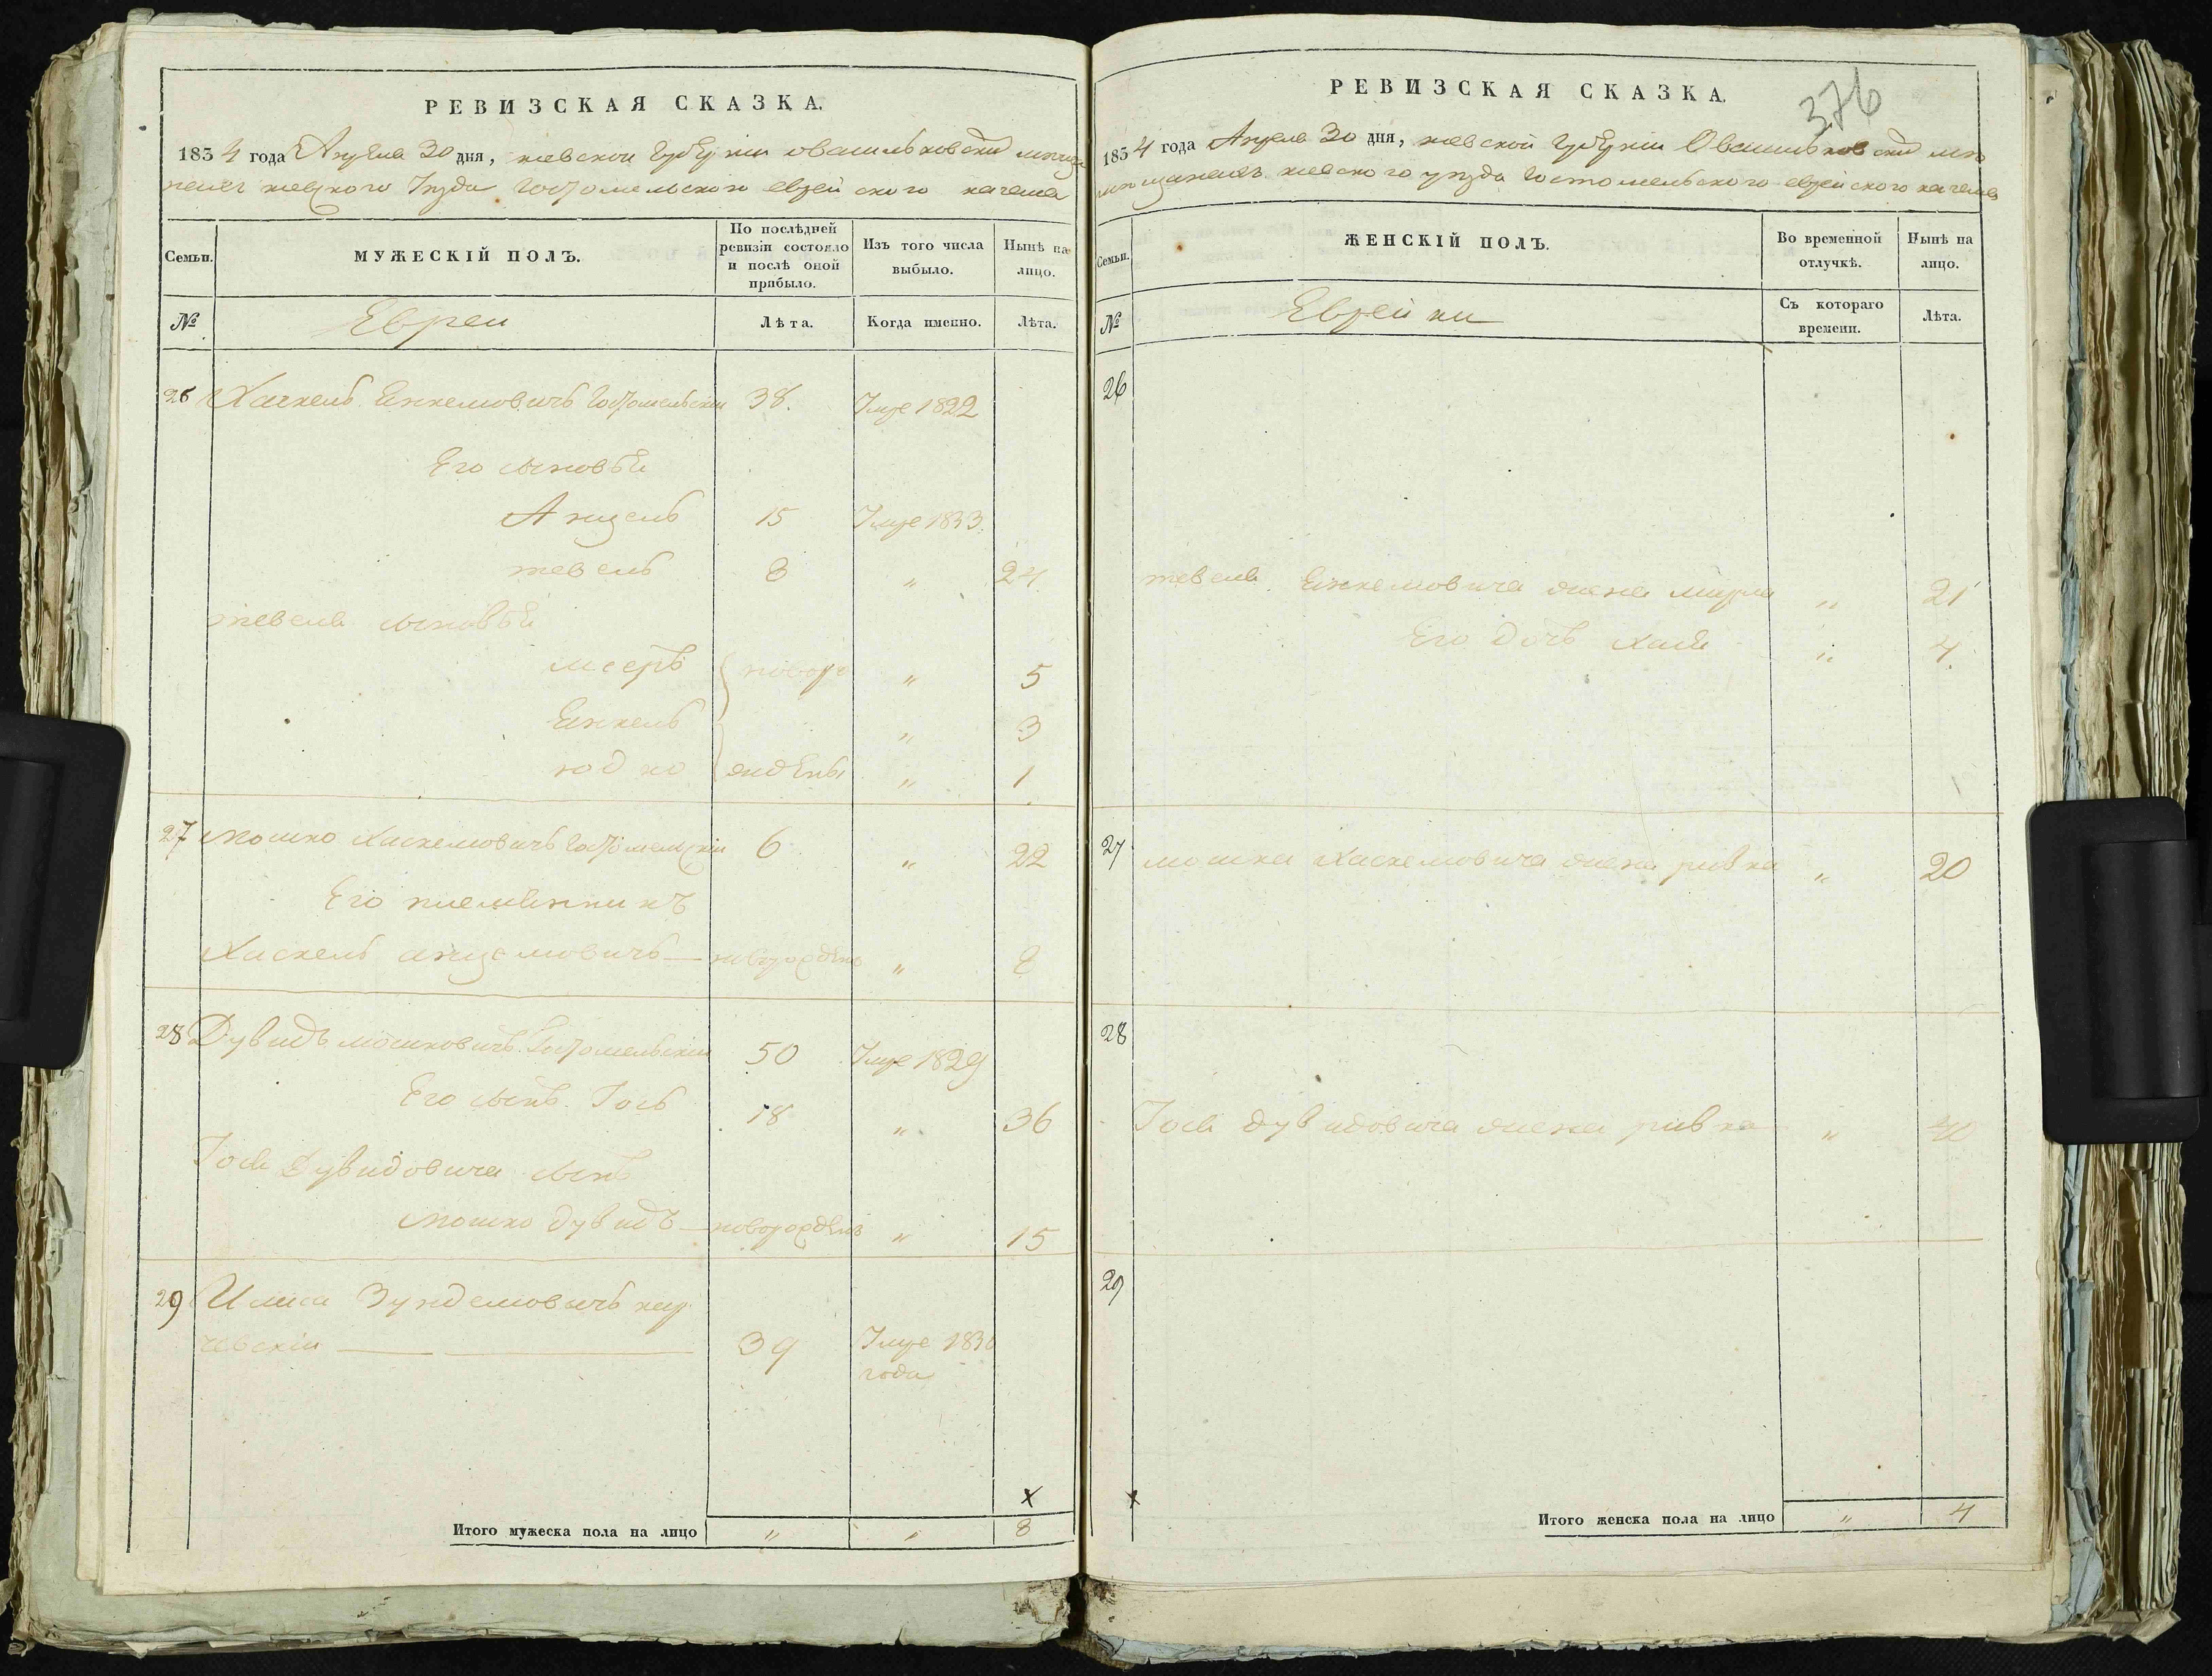 РЕВИЗСКАЯ СКАЗКА.
1834 года Апреля 30 дня, киевской Губернии о васильковских мѣща
нахъ киевского уѣзда Гостомельского еврейского кагала
Семьи.
МУЖЕСКІЙ ПОЛЪ.
По послѣдней ревизіи состояло и послѣ оной прибыло.
Изъ того числа выбыло.
Нынѣ на лицо.
№
Евреи
Лѣта.
Когда именно.
Лѣта.
26 Хаскель Янкелювичь Гостомельскии 38. Умре 1822
Его сыновья
Анцель 15 Умре 1833
тевель 8 „ 24
тевеля сыновья
меерь новоро „ 5
Янкель „ 3
юдко жденъ „ 1
27 мошко Хаскелювичь Гостомелскіи 6 „ 22
Его племянникъ
Хаскель анцелювичь — новорожденъ „ 8
28 Дувидъ мошковичь Гостомельскии 50 Умре 1829
Его сынъ Іось 18 „ 36
Іося Дувидовича сынъ
мошко дувидъ — новорожденъ „ 15
29 Зунделювичь
39 Умре 1830
года
х
Итого мужеска пола на лицо „ „ 8
376
РЕВИЗСКАЯ СКАЗКА.
1834 года Апреля 30 дня, киевской Губернии О васильковских мѣ
мѣщанахъ киевского уѣзда Гостомельского еврейского кагала
Семьи.
ЖЕНСКІЙ ПОЛЪ.
Во временной отлучкѣ.
Нынѣ на лицо.
№
Еврейки
Съ котораго времени.
Лѣта.
26
тевеля жена мирля „ 21
Его дочь хая „ 4.
27 мошка Хаскелювича жена ривка „ 20
28
Іося дувидовича жена ривка „ 40
29
х
Итого женска пола на лицо „ 4